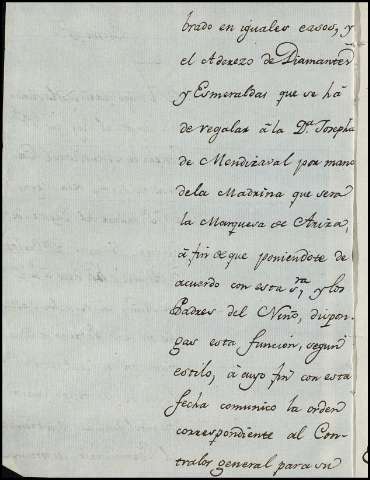 brado en iguales casos, y
el Aderezo de Diamantes
y Esmeraldas que se há
de regalar à la D.ª Josepha
de Mendizaval por mano
dela Madrina que sera
la Marquesa de Ariza,
à fin de que poniendote de
acuerdo con esta s.ra, y los
Padres del Niño, dispon-
gas esta funcion, segun
estilo, à cuyo fin con esta
fecha comunico la orden
correspondiente al Con-
tralor general para su